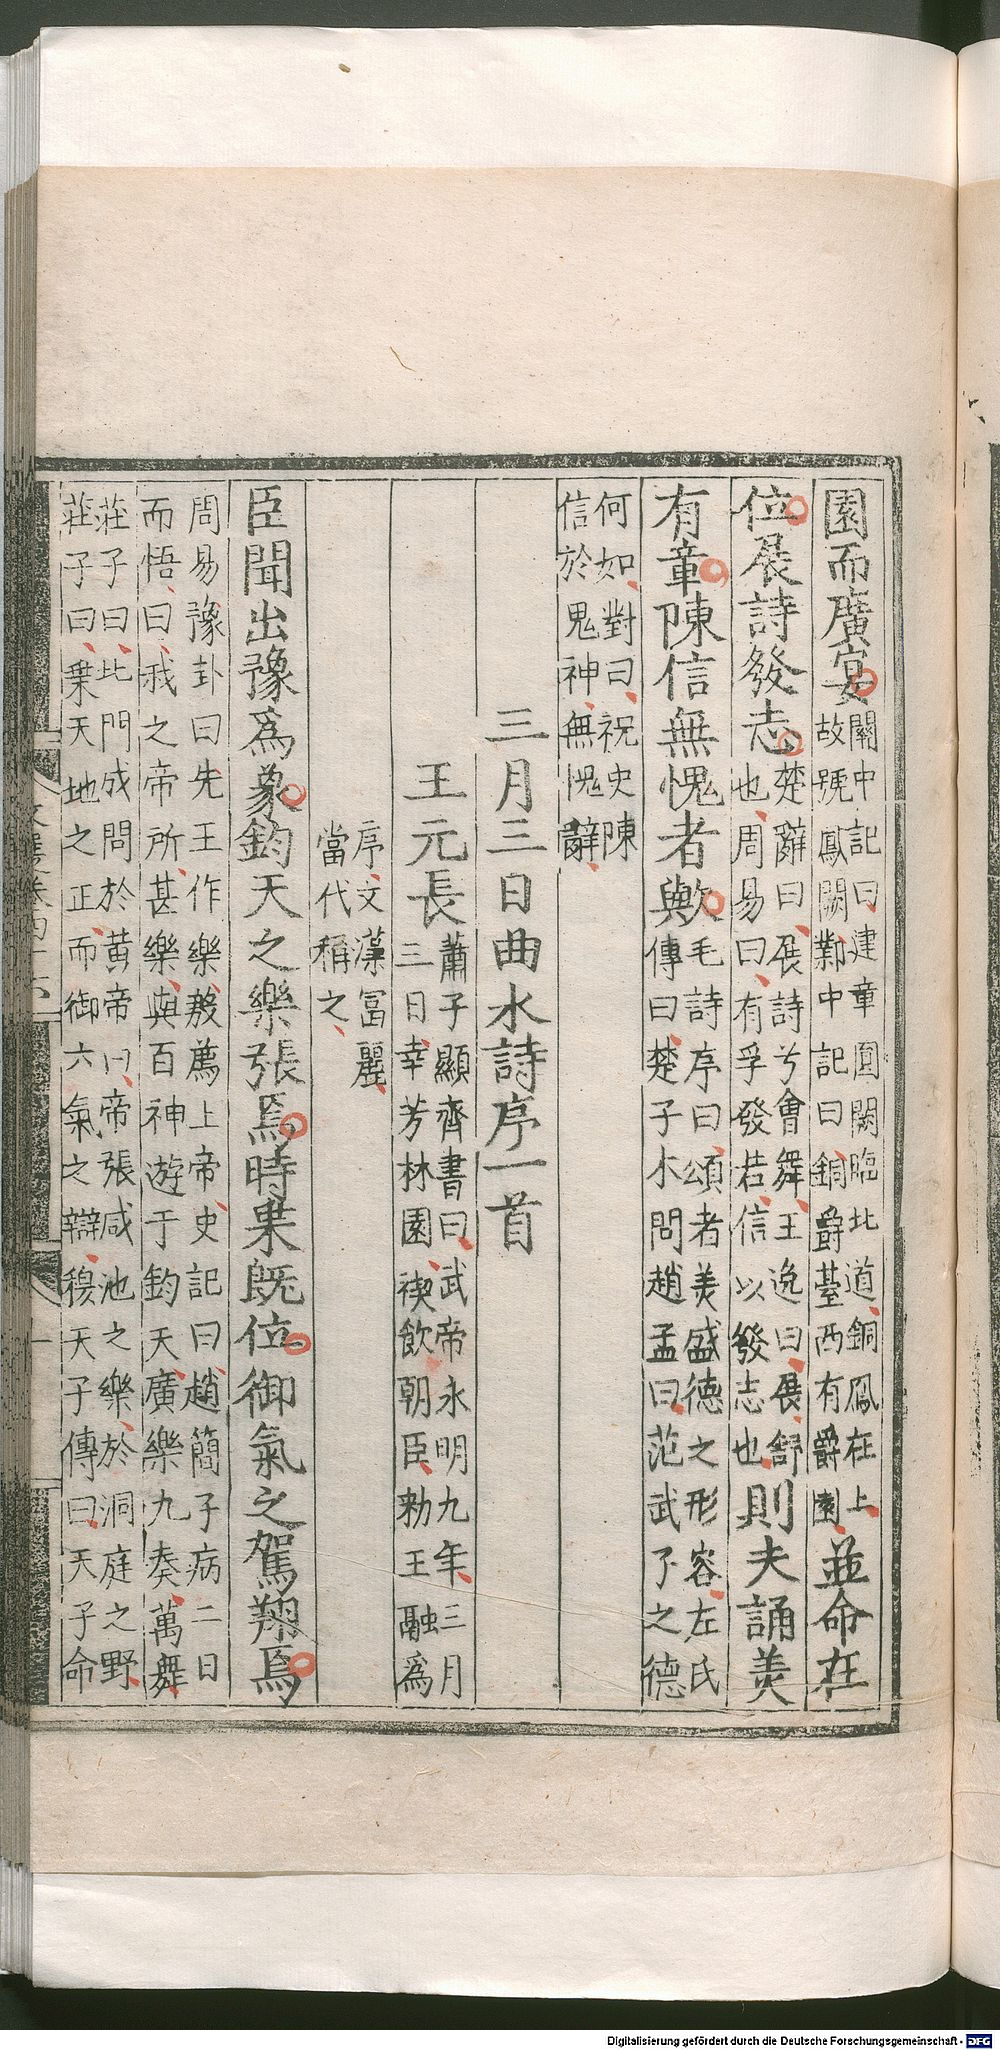 園而廣宴關中記曰建章圓闕臨北道銅鳳在上故號鳳闕鄴中記曰銅爵臺西有爵園並命在
位展詩發志楚辭曰展詩兮會舞王逸曰展舒也周易曰有孚發若信以發志也則夫誦美
有章陳信無愧者歟毛詩序曰頌者美盛德之形容左氏傳曰楚子木問趙孟曰范武子之德
何如對曰祝史陳信於鬼神無愧辭
三月三日曲水詩序一首
王元長蕭子顯齊書曰武帝永明九年三月三日幸芳林園禊飲朝臣勑王融爲
序文藻富麗當代稱之
臣聞出豫爲象鈞天之樂張焉時乗既位御氣之駕翔焉
周易豫卦曰先王作樂殷薦上帝史記曰趙簡子病二日而悟曰我之帝所甚樂與百神遊于鈞天廣樂九奏萬舞
莊子曰北門成問於黃帝曰帝張咸池之樂於洞庭之野莊子曰乗天地之正而御六氣之辯穆天子傳曰天子命
Digitalisierung gefördert durch die Deutsche Forschungsgemeinschaft - DFG